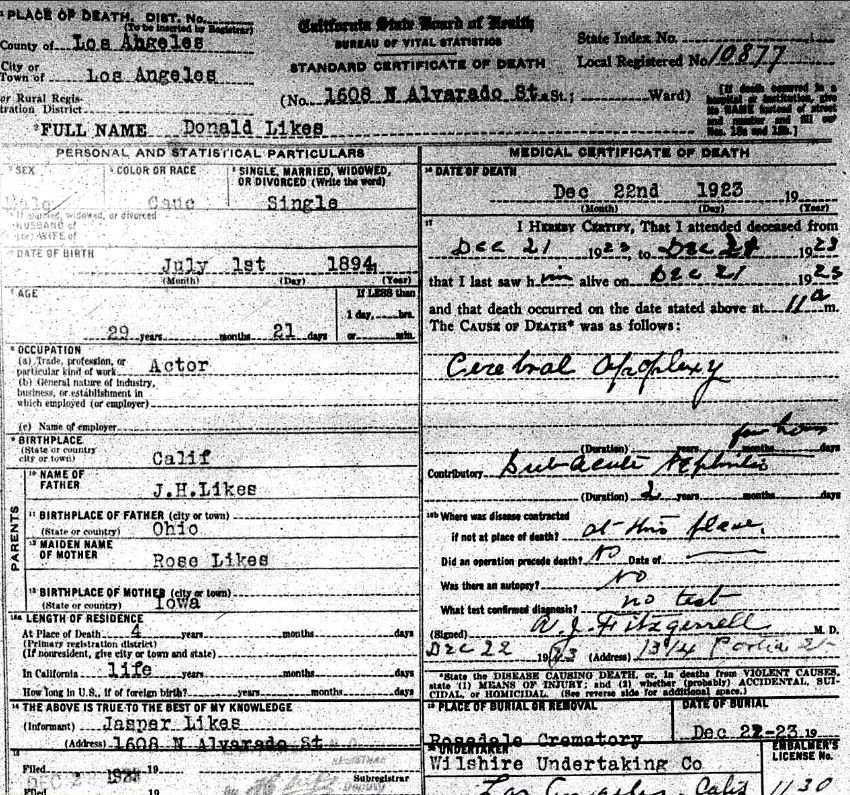 1 PLACE OF DEATH, DIST. No.
(To be inserted by Registrar)
County of Los Angeles
City or
Town of Los Angeles
or Rural Regis-
tration District
California State Board of Health
BUREAU OF VITAL STATISTICS
STANDARD CERTIFICATE OF DEATH
(No. 1608 N Alvarado St. St.; Ward)
State Index No.
Local Registered No. 10877
2 FULL NAME Donald Likes
PERSONAL AND STATISTICAL PARTICULARS
3 SEX
Male
4 COLOR OR RACE
Cauc
5 SINGLE, MARRIED, WIDOWED,
OR DIVORCED (Write the word)
Single
If married, widowed, or divorced
HUSBAND of
(or) WIFE of
DATE OF BIRTH
July 1st 1894
(Month) (Day) (Year)
7 AGE
29 years months 21 days
If LESS than
1 day, hrs.
or min
8 OCCUPATION
(a) Trade, profession, or
particular kind of work Actor
(b) General nature of industry,
business, or establishment in
which employed (or employer)
(c) Name of employer
9 BIRTHPLACE
(State or country
city or town) Calif
PARENTS
10 NAME OF
FATHER J.H.Likes
11 BIRTHPLACE OF FATHER (city or town)
(State or country) Ohio
12 MAIDEN NAME
OF MOTHER Rose Likes
13 BIRTHPLACE OF MOTHER (city or town)
(State or country) Iowa
LENGTH OF RESIDENCE
At Place of Death 4 years months days
(Primary registration district)
(If nonresident, give city or town and state)
In California life years months days
How long in U.S., if of foreign birth? years months days
14 THE ABOVE IS TRUE TO THE BEST OF MY KNOWLEDGE
(Informant) Jasper Likes
(Address) 1608 N Alvarado St
15
Filed 19
Subregistrar
Filed 19
MEDICAL CERTIFICATE OF DEATH
16 DATE OF DEATH
Dec 22nd 1923 19
(Month) (Day) (Year)
17
I HEREBY CERTIFY, That I attended deceased from
Dec 21 1923, to Dec 1923
that I last saw him alive on Dec 21 1923
and that death occurred on the date stated above at 11 a m.
THE CAUSE OF DEATH* was as follows:
Cerebral Apoplexy
few hours
(Duration) years months days
Contributory Sub Acute Nephritis
(Duration) 2 years months days
18b Where was disease contracted
if not at place of death? at this place.
Did an operation precede death? No Date of
Was there an autopsy? No
What test confirmed diagnosis? no test
(Signed) A. J. Fitzgerrell M. D.
Dec 22 1923 (Address) 1314 Portia St
*State the DISEASE CAUSING DEATH, or, in deaths from VIOLENT CAUSES,
state (1) MEANS OF INJURY; and (2) whether (probably) ACCIDENTAL, SUI-
CIDAL, or HOMICIDAL. (See reverse side for additional space.)
19 PLACE OF BURIAL OR REMOVAL
Rosedale Crematory
DATE OF BURIAL
Dec 22-23 19
UNDERTAKER
Wilshire Undertaking Co
Los Angeles, Calif
EMBALMER'S
LICENSE No.
1130